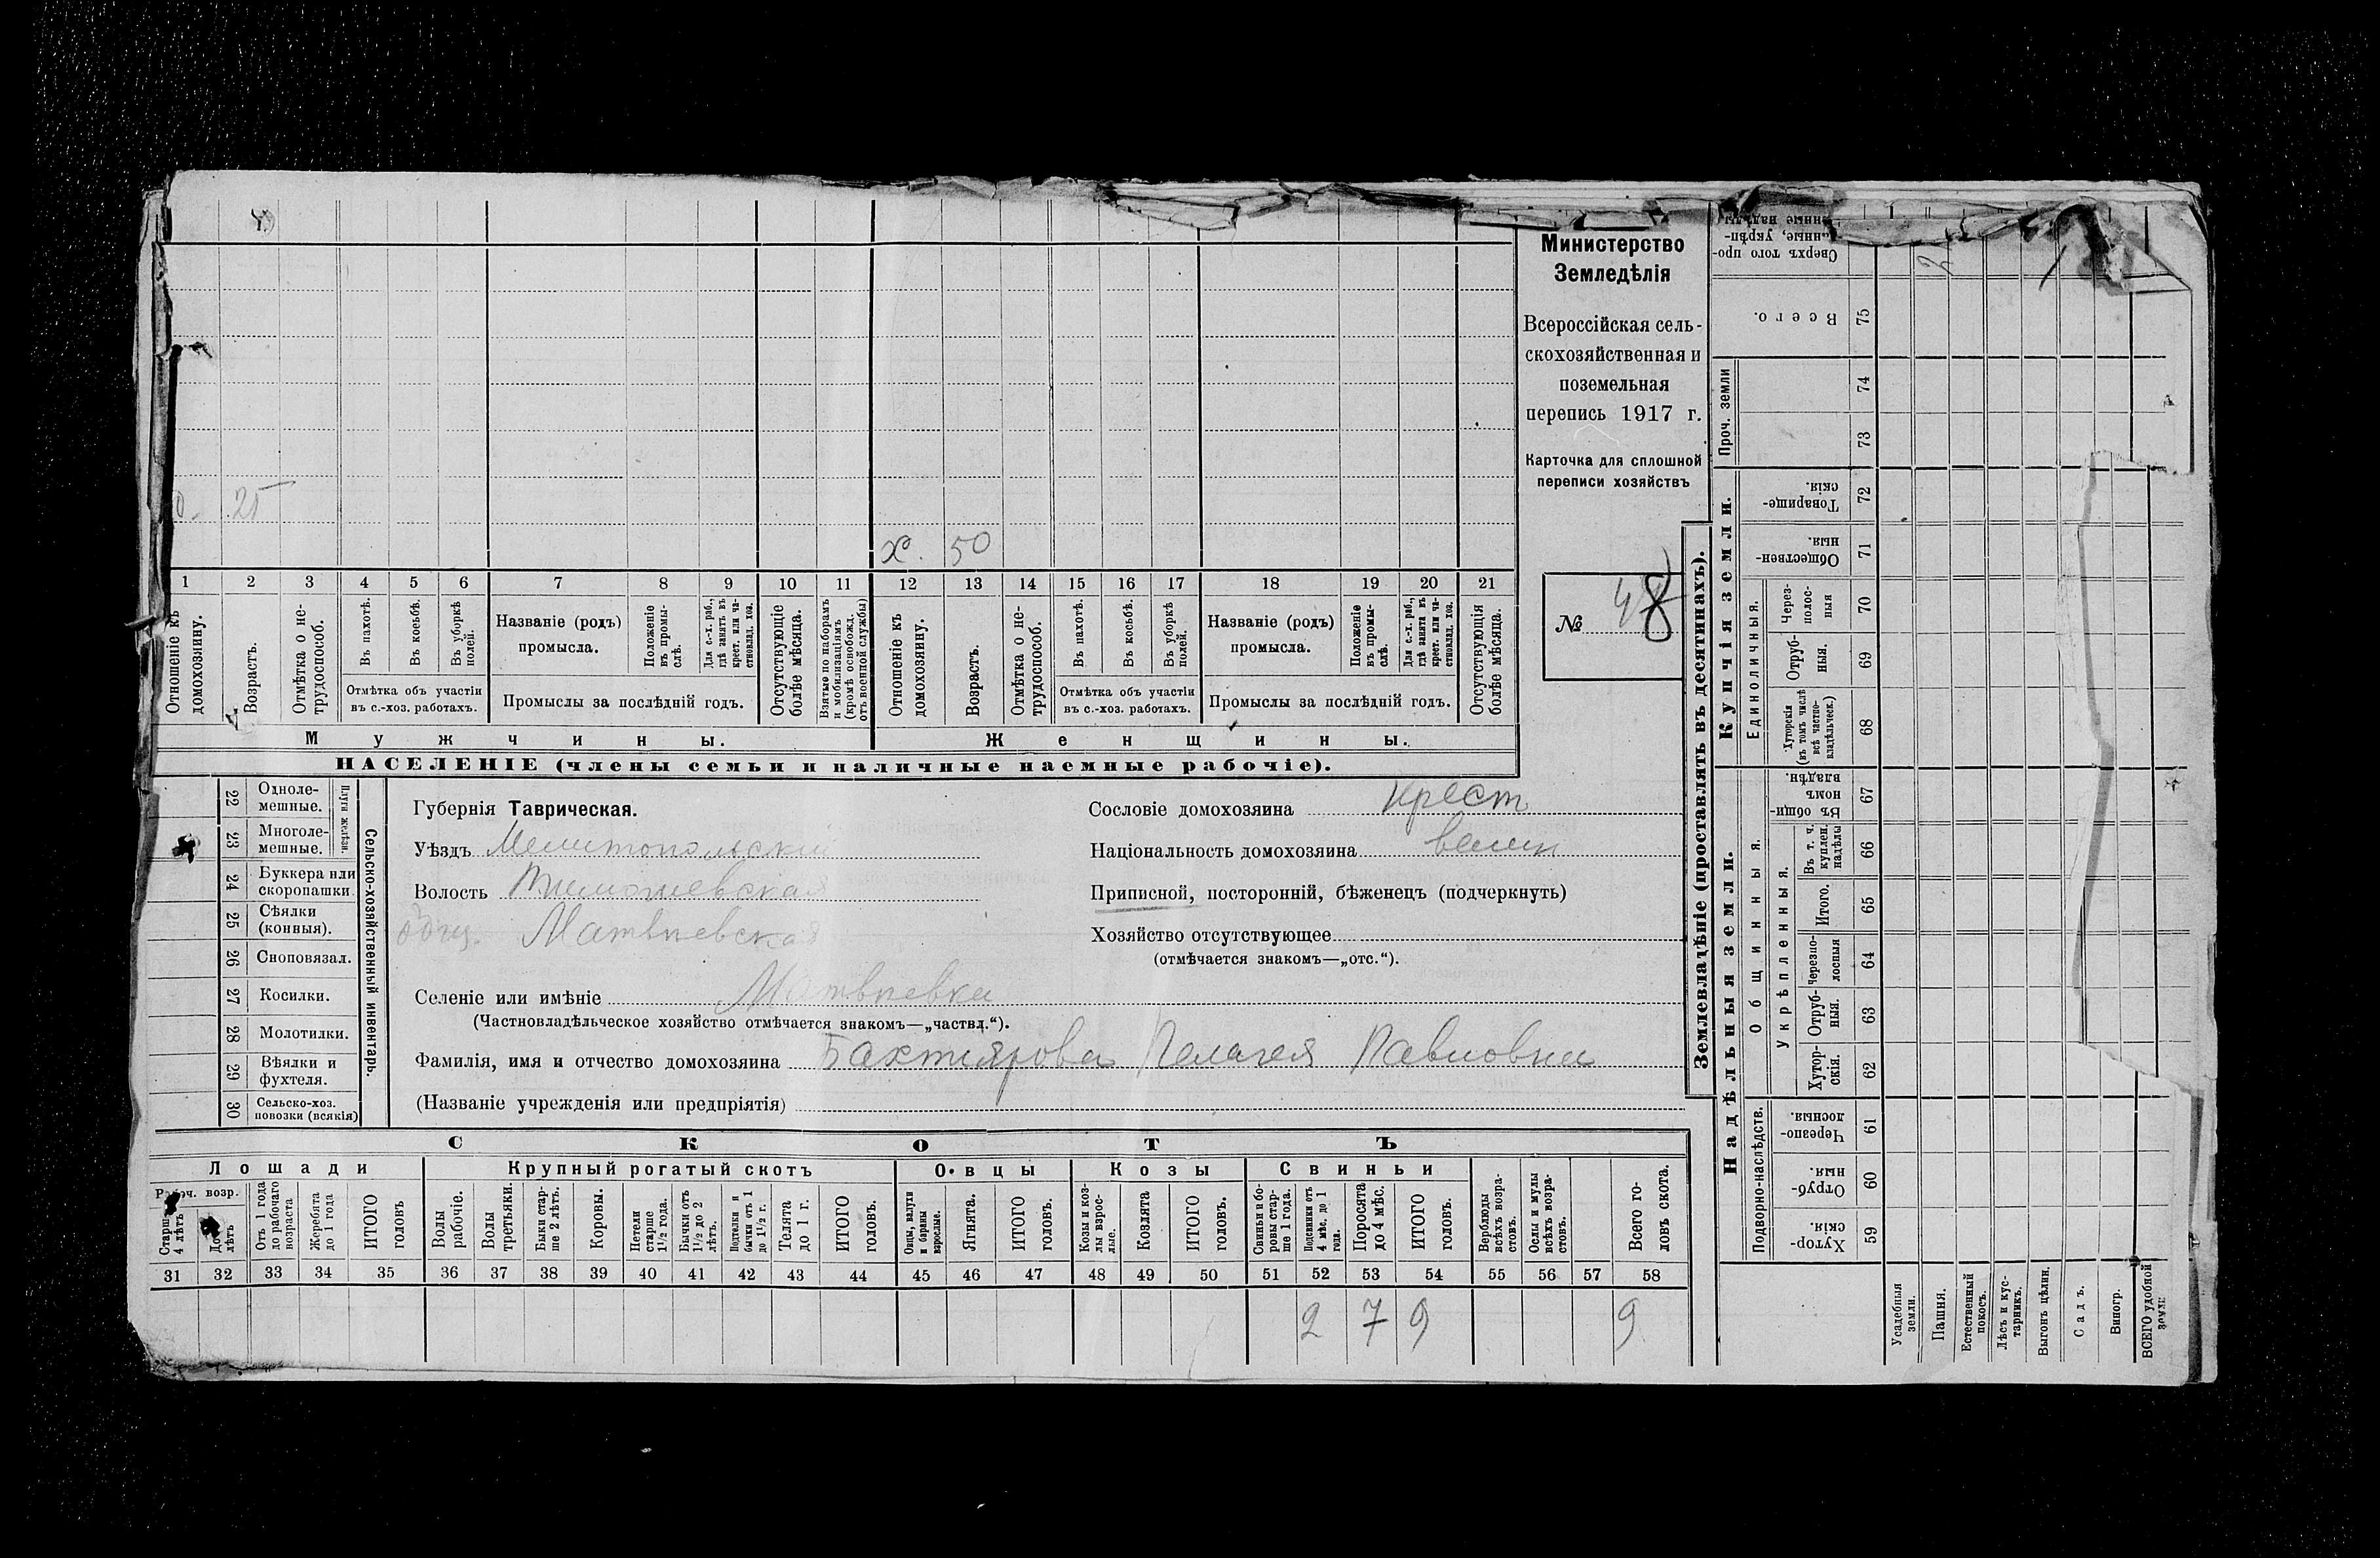 25
х. 50
1 2 3 4 5 6 7 8 9 10 11 12 13 14 15 16 17 18 19 20 21
Отношеніе къ домохозяину.
Возрастъ.
Отмѣтка о не-
трудоспособ.
Въ пахотѣ.
Въ косьбѣ.
Въ уборкѣ
полей.
Отмѣтка объ участіи
въ с.-хоз. работахъ.
Названіе (родъ)
промысла.
Положеніе
въ промы-
слѣ.
Для с.-х. раб.,
гдѣ занятъ въ
крест. или ча-
стновлад. хоз.
Промыслы за послѣдній годъ.
Отсутствующіе
болѣе мѣсяца.
Взятые по наборамъ
и мобилизаціямъ
(кромѣ освобожд.
отъ военной службы)
Отношеніе къ
домохозяину.
Возрастъ.
Отмѣтка о не-
трудоспособ.
Въ пахотѣ.
Въ косьбѣ.
Въ уборкѣ
полей.
Отмѣтка объ участіи
въ с.-хоз. работахъ.
Названіе (родъ)
промысла.
Положеніе
въ промы-
слѣ.
Для с.-х. раб.,
гдѣ занята въ
крест. или ча-
стновлад. хоз.
Промыслы за послѣдній годъ.
Отсутствующія
болѣе мѣсяца.
Мужчины.
Женщины.
НАСЕЛЕНІЕ (члены семьи и наличные наемные рабочіе).
Министерство
Земледѣлія
Всероссійская сель-
скохозяйственная и
поземельная
перепись 1917 г.
Карточка для сплошной
переписи хозяйствъ
№ 48
22 Одноле-
мешные.
23 Многоле-
мешные.
Плуги желѣзн.
24 Буккера или
скоропашки.
25 Сѣялки
(конныя).
26 Сноповязал.
27 Косилки.
28 Молотилки.
29 Вѣялки и
фухтеля.
30 Сельско-хоз.
повозки (всякія)
Сельско-хозяйственный инвентарь.
Губернія Таврическая.
Уѣздъ Мелитопольский
Волость
общ. Матвѣевская
Селеніе или имѣніе Матвѣевка
(Частновладѣльческое хозяйство отмѣчается знакомъ—„частвл.“).
Фамилія, имя и отчество домохозяина Бахтиярова Пелагея Павловна
(Названіе учрежденія или предпріятія)
Сословіе домохозяина Крест
Національность домохозяина велик
Приписной, посторонній, бѣженецъ (подчеркнуть)
Хозяйство отсутствующее
(отмѣчается знакомъ—„отс.“).
СКОТЪ
Лошади
Крупный рогатый скотъ
Овцы
Козы
Свиньи
Рабоч. возр.
Старше
4 лѣтъ
До
лѣтъ
Отъ 1 года
до рабочаго
возраста
Жеребята
до 1 года
ИТОГО
головъ
Волы
рабочіе.
Волы
третьяки.
Быки стар-
ше 2 лѣтъ.
Коровы.
Нетели
старше
1½ года.
Бычки отъ
1½ до 2
лѣтъ.
Подтелки и
бычки отъ 1
до 1½ г.
Телята
до 1 г.
ИТОГО
головъ.
Овцы, валухи
и бараны
взрослые.
Ягнята.
ИТОГО
головъ.
Козы и коз-
лы взрос-
лые.
Козлята
ИТОГО
головъ.
Свиньи и бо-
ровы стар-
ше 1 года.
Подсвинки отъ
4 мѣс. до 1
года.
Поросята
до 4 мѣс.
ИТОГО
головъ.
Верблюды
всѣхъ возра-
стовъ.
Ослы и мулы
всѣхъ возра-
стовъ.
Всего го-
ловъ скота.
31 32 33 34 35 36 37 38 39 40 41 42 43 44 45 46 47 48 49 50 51 52 53 54 55 56 57 58
2 7 9 9
Землевладѣніе (проставлять въ десятинахъ).
Надѣльныя земли.
Купчія земли.
Проч. земли
Подворно-наслѣдств.
Общинныя.
Укрѣпленныя.
Единоличныя.
Сверхъ того про-
Всего. 75
74
73
Товарище-
скія. 72
Обществен-
ныя. 71
Через-
полос-
ныя 70
Отруб-
ныя. 69
Хуторскія
(въ томъ числѣ
всѣ частно-
владѣльческ.) 68
Въ общин-
номъ
владѣн. 67
Въ т. ч.
куплен.
надѣлы 66
Итого. 65
Черезпо-
лосныя 64
Отруб-
ныя. 63
Хутор-
скія. 62
Черезпо-
лосныя. 61
Отруб-
ныя. 60
Хутор-
скія. 59
Усадебныя
земли.
Пашня.
Естественный
покосъ.
Лѣсъ и кус-
тарникъ.
Выгонъ цѣлин.
Садъ.
Виногр.
ВСЕГО удобной
земли